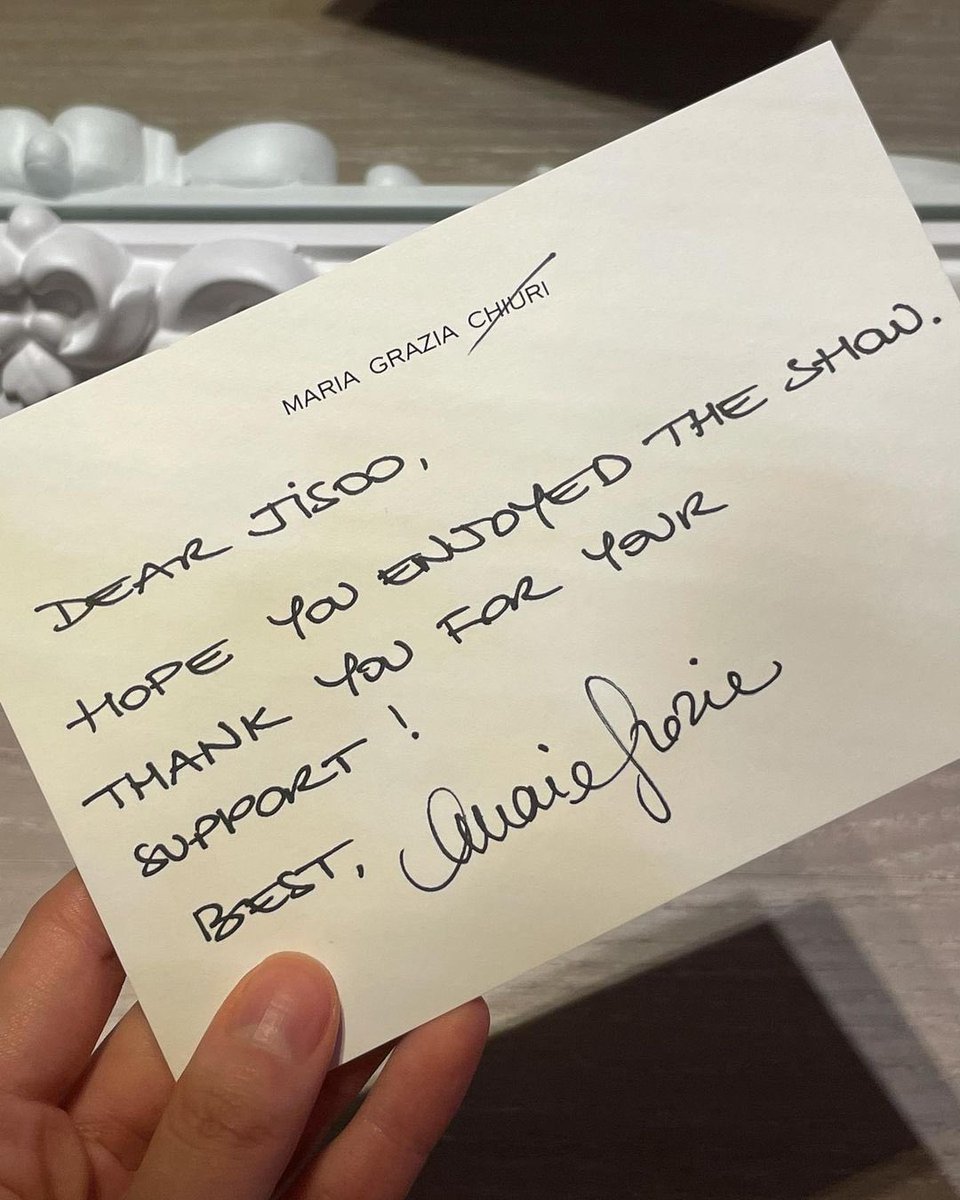 MARIA GRAZIA CHIURI
DEAR JISOO,
HOPE YOU ENJOYED THE SHOW.
THANK YOU FOR YOUR
SUPPORT!
BEST, Maria Grazia